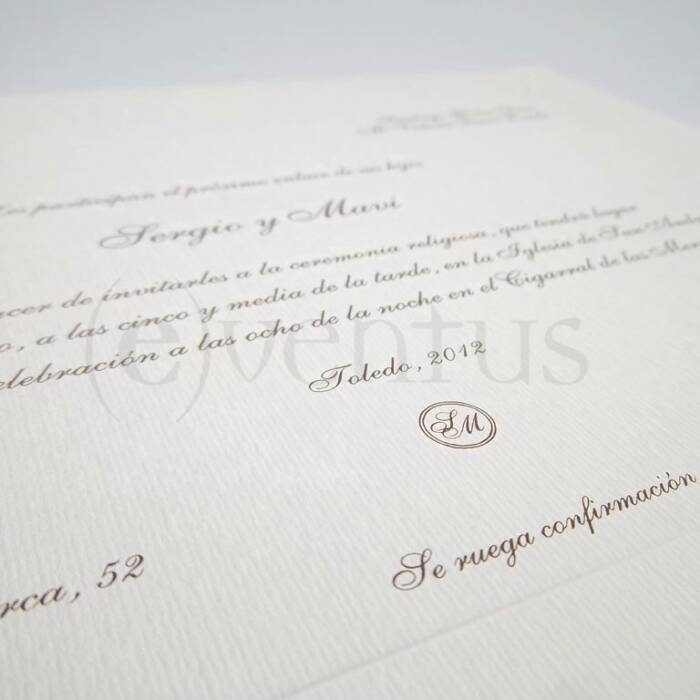 participan el próximo enlace de su hijo
Sergio y Mavi
cer de invitarles a la ceremonia religiosa, que tendrá lugar
o, a las cinco y media de la tarde, en la Iglesia de San
elebración a las ocho de la noche en el Cigarral de las
(e)ventus
Toledo, 2012
SM
rca, 52
Se ruega confirmación